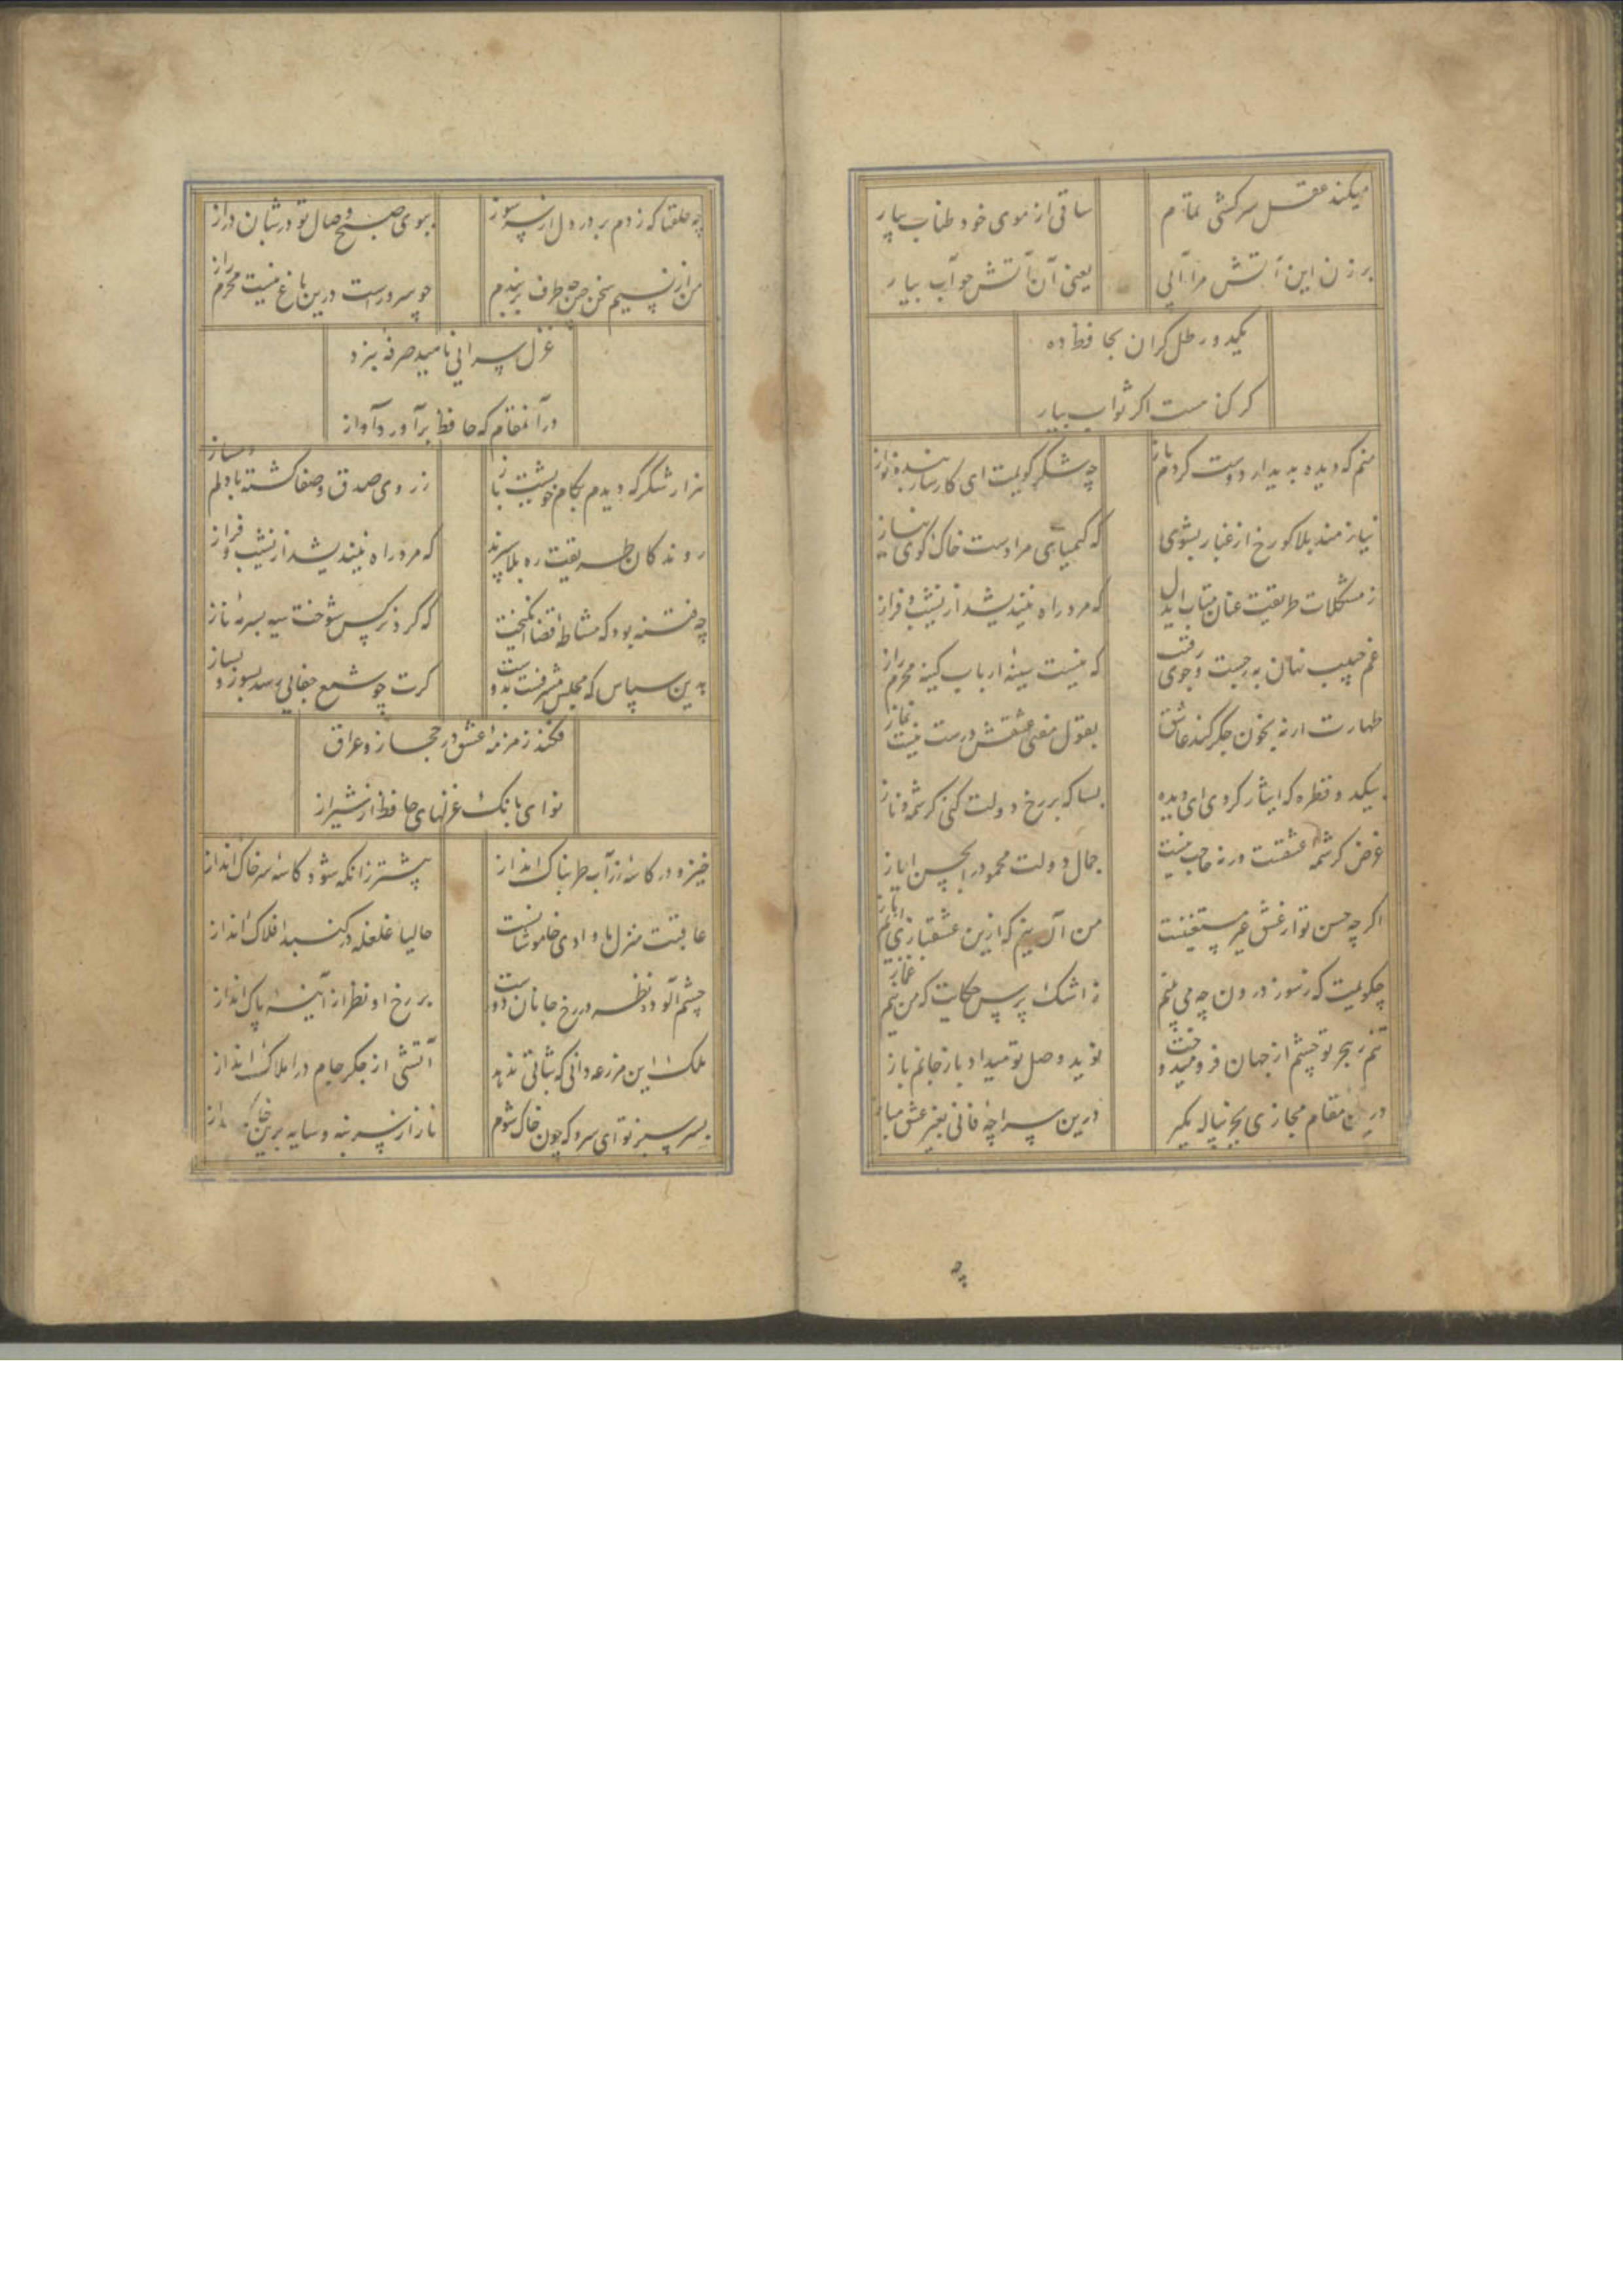 میکند عقل سرکشی تمام ساقی از موی خود طناب بیار
بر زن این آتش مرا آبی یعنی آن آتش چو آب بیار
یکدو رطل کران بحافظ ده
کر کناهست اکر ثواب بیار
منم که دیده بدیدار دوست کردم باز چه شکر کویمت ای کارساز بنده نواز
نیازمند بلا کو رخ از غبار بشوی که کیمیای مرادست خاک کوی نیاز
ز مشکلات طریقت عنان متاب ایدل که مرد راه نیندیشد از نشیب و فراز
غم حبیب نهان به ز جست و جوی رقیب که نیست سینهٔ ارباب کینه محرم راز
طهارت ار نه بخون جکر کند عاشق بقول مفتی عشقش درست نیست نماز
بیکدو قطره که ایثار کردی ای دیده بسا که بر رخ دولت کنی کرشمه و ناز
غرض کرشمهٔ عشقست ورنه حاجت نیست جمال دولت محمود را بحسن ایاز
اکر چه حسن تو از عشق غیر مستغنیست من آن نیم که ازین عشقبازی آیم باز
چکویمت که ز سوز درون چه می بینم ز اشک پرس حکایت که من نیم غماز
تنم ز هجر تو چشم از جهان فرو میدوخت نوید وصل تو میداد باز جانم باز
درین مقام مجازی بجز پیاله مکیر درین سراچهٔ فانی بغیر عشق مباز
چه حلقها که زدم بر در دل از سر سوز ببوی صبح وصال تو در شبان دراز
من از نسیم سخن چین چه طرف بربندم چو سرو راست درین باغ نیست محرم راز
غزل سرایی ناهید صرفهٔ نبرد
در آنمقام که حافظ برآورد آواز
هزار شکر که دیدم بکام خویشت باز ز روی صدق و صفا کشته با دلم دمساز
روندکان طریقت ره بلا سپرند که مرد راه نیندیشد از نشیب و فراز
چه فتنه بود که مشاطهٔ قضا انکیخت که کرد نرکس شوخت سیه بسرمهٔ ناز
بدین سپاس که مجلس منورست بدوست کرت چو شمع جفایی رسد بسوز و بساز
فکند زمزمهٔ عشق در حجاز و عراق
نوای بانک غزلهای حافظ از شیراز
خیز و در کاسهٔ زر آب طربناک انداز پیشتر زانکه شود کاسهٔ سر خاک انداز
عاقبت منزل ما وادی خاموشانست حالیا غلغله در کنبد افلاک انداز
چشم آلوده نظر در رخ جانان دورست بر رخ او نظر از آینهٔ پاک انداز
ملک این مزرعه دانی که ثباتی ندهد آتشی از جکر جام در املاک انداز
بسر سبز تو ای سرو که چون خاک شوم ناز از سر بنه و سایه برین خاک انداز